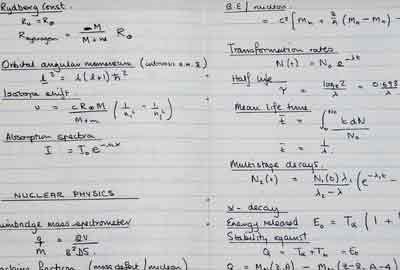 Rydberg Const.
R∞ = R∞
R Hydrogen = M / M + m R∞
Orbital angular momentum
l² = l(l+1) ħ²
Isotope shift.
υ = c R∞ M / M + m (1/n₁² - 1/n₂²)
Absorption spectra
I = I₀ e
NUCLEAR PHYSICS
mass spectrometer
q / M = 2V / B²
(mass defect / nucleon)
B.E / nucleon
= c² [ Mn + Z/A (MH - Mn) -
Transformation rates
N(t) = N₀ e^-λt
Half life
τ = loge2 / λ = 0.693 / λ
Mean life time
t̄ = ∫ t dN / N₀
t̄ = 1 / λ
Multistage decays.
N₂(t) = N₁(0) λ₁ / λ₂ - λ₁ ( e^-λ₁t -
α - decay
Energy released E₀ = Tα ( 1 +
Stability against
Q = Tα + Tb = E₀